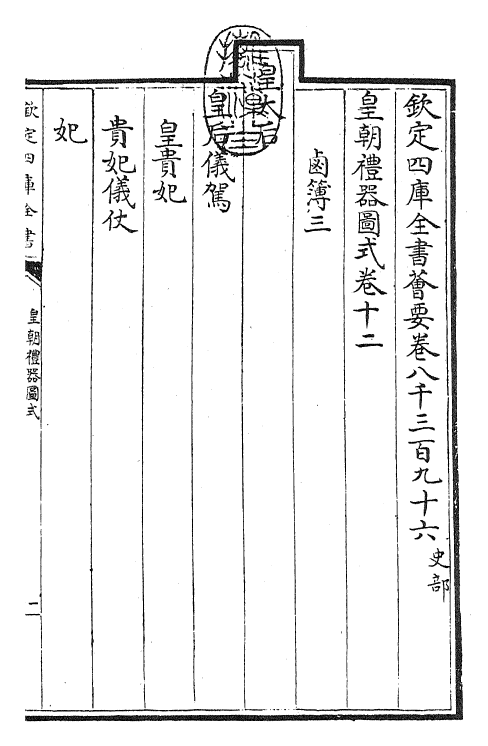 欽定四庫全書薈要卷八千三百九十六 史部
皇朝禮器圖式卷十二
鹵簿三
皇太后
皇后儀駕
皇貴妃
貴妃儀仗
妃
欽定四庫全書
皇朝禮器圖式
一